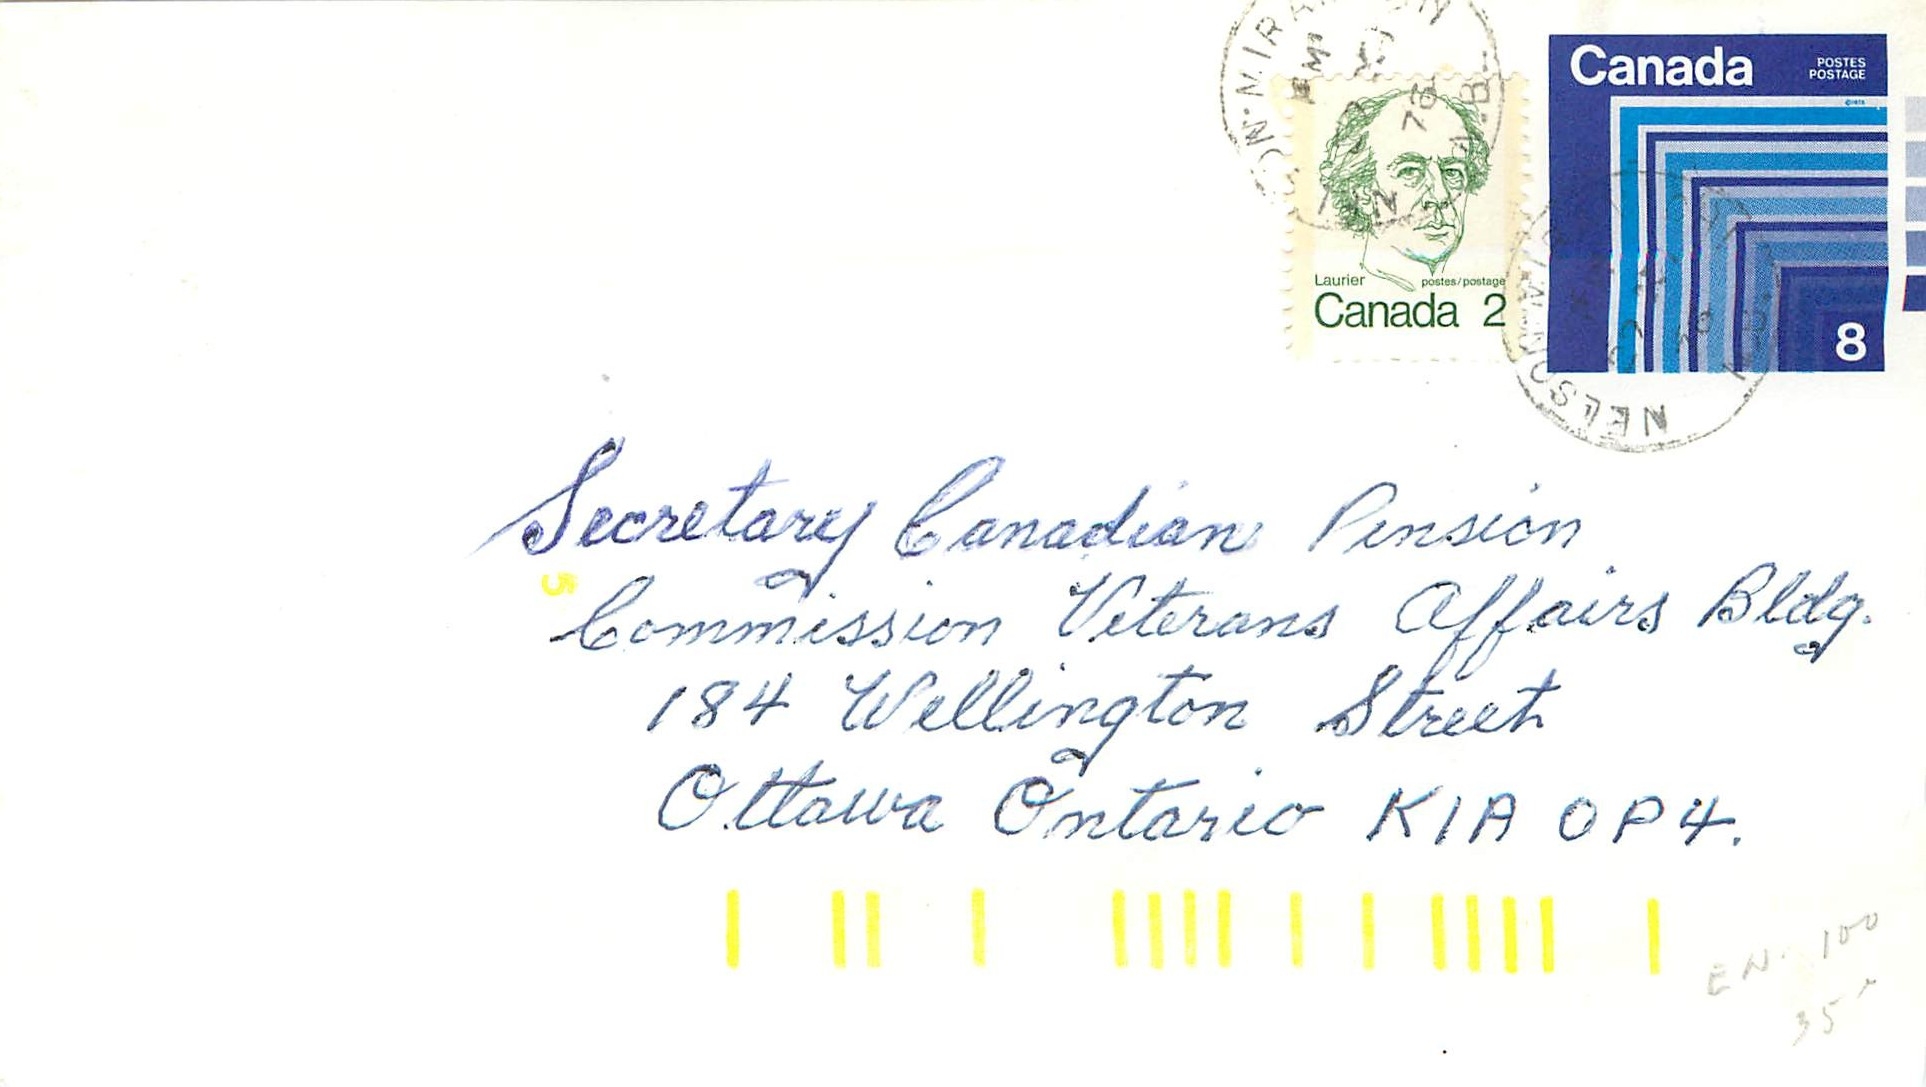 Canada
POSTES
POSTAGE
8
Laurier postes/postage
Canada 2
NELSON-MIRAMICHI
N.B.
AM
76
Secretary Canadian Pension
5
Commission Veterans Affairs Bldg.
184 Wellington Street
Ottawa Ontario K1A 0P4.
EN. 100
35